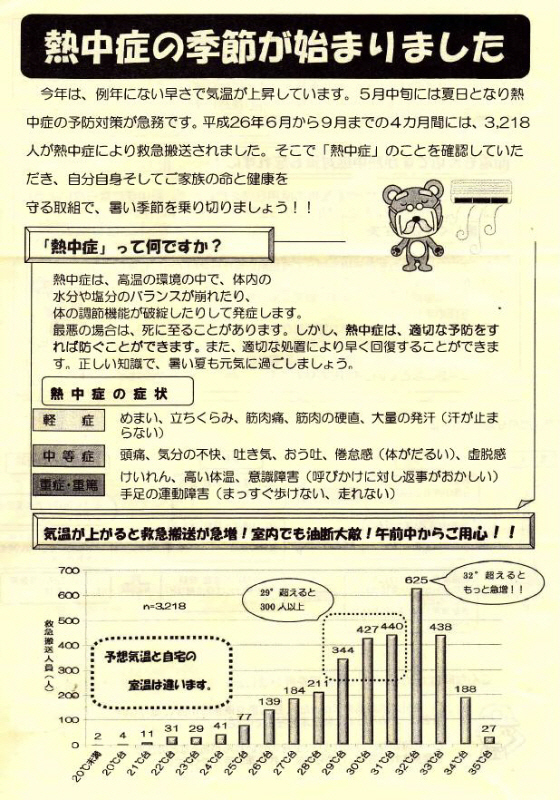 熱中症の季節が始まりました
今年は、例年にない早さで気温が上昇しています。5月中旬には夏日となり熱
中症の予防対策が急務です。平成26年6月から9月までの4カ月間には、3,218
人が熱中症により救急搬送されました。そこで「熱中症」のことを確認していた
だき、自分自身そしてご家族の命と健康を
守る取組で、暑い季節を乗り切りましょう！！
「熱中症」って何ですか？
熱中症は、高温の環境の中で、体内の
水分や塩分のバランスが崩れたり、
体の調節機能が破綻したりして発症します。
最悪の場合は、死に至ることがあります。しかし、熱中症は、適切な予防をす
れば防ぐことができます。また、適切な処置により早く回復することができま
す。正しい知識で、暑い夏も元気に過ごしましょう。
熱中症の症状
軽 症
めまい、立ちくらみ、筋肉痛、筋肉の硬直、大量の発汗（汗が止ま
らない）
中等症
頭痛、気分の不快、吐き気、おう吐、倦怠感（体がだるい）、虚脱感
重症・重篤
けいれん、高い体温、意識障害（呼びかけに対し返事がおかしい）
手足の運動障害（まっすぐ歩けない、走れない）
気温が上がると救急搬送が急増！室内でも油断大敵！午前中からご用心！！
救急搬送人員（人）
700
600
500
400
300
200
100
0
n=3,218
29°超えると
300人以上
32°超えると
もっと急増！！
予想気温と自宅の
室温は違います。
2 4 11 31 29 41 77 139 184 211 344 427 440 625 438 188 27
20℃未満 20℃台 21℃台 22℃台 23℃台 24℃台 25℃台 26℃台 27℃台 28℃台 29℃台 30℃台 31℃台 32℃台 33℃台 34℃台 35℃台